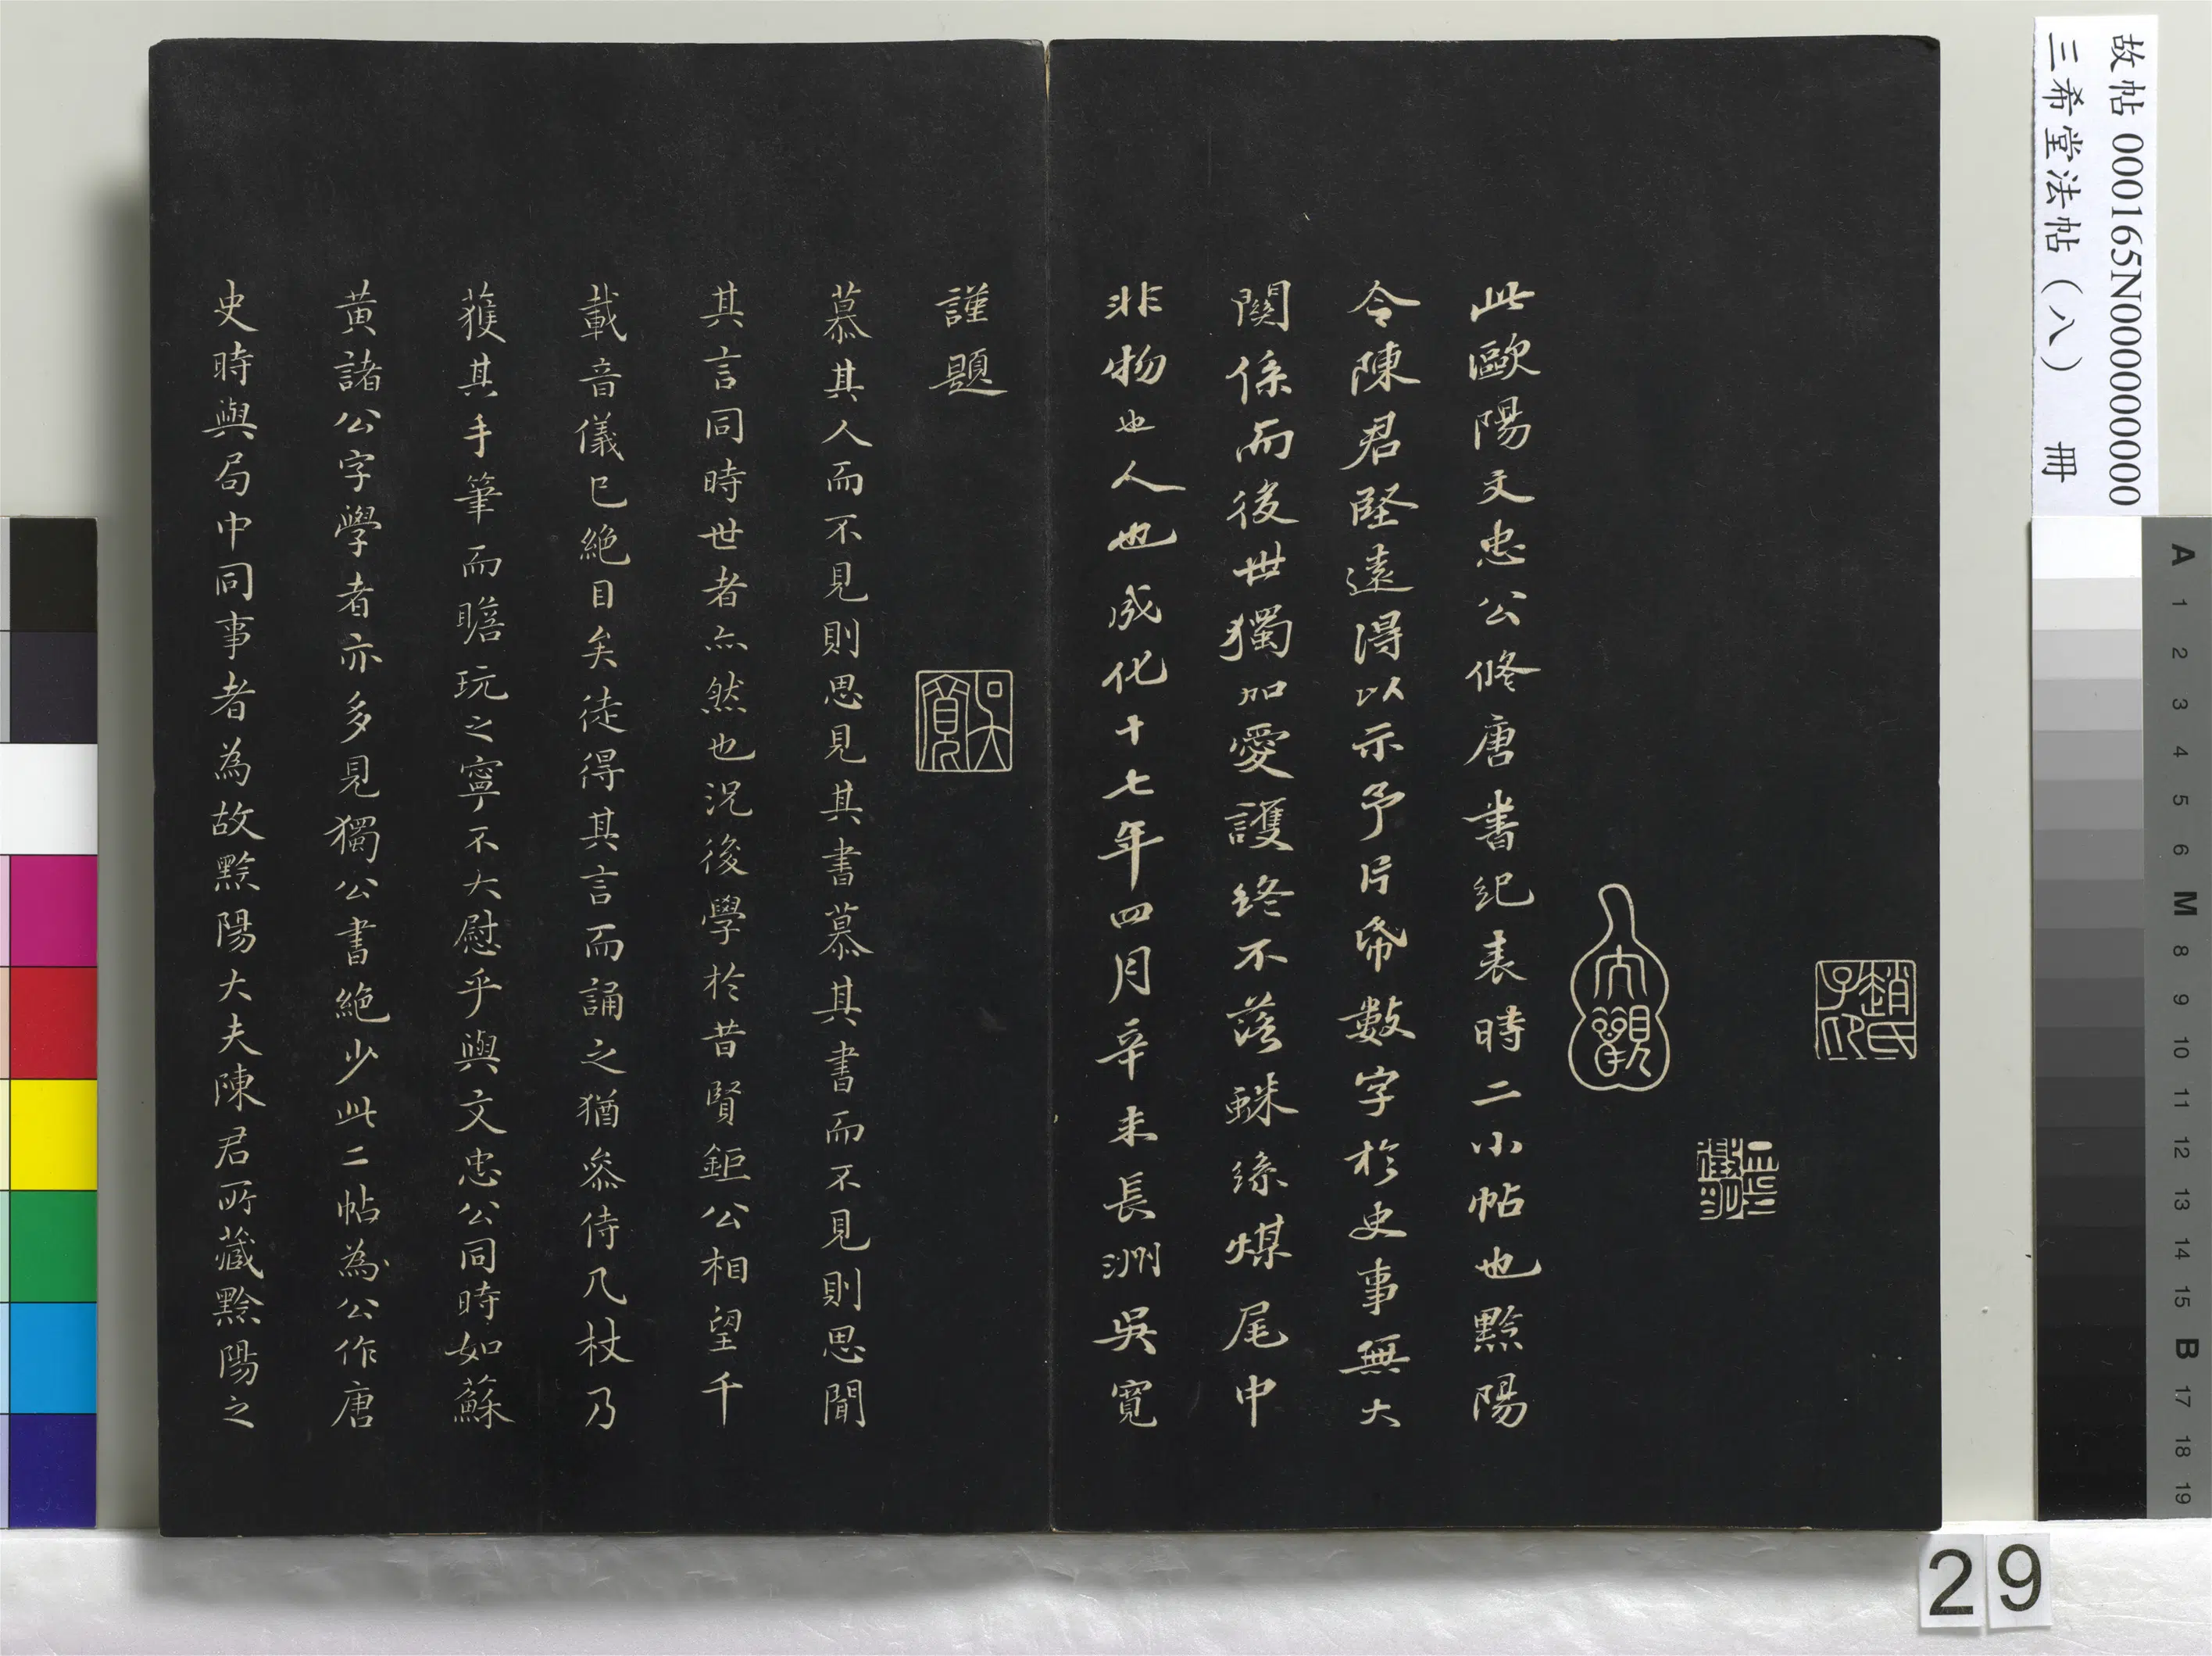 此歐陽文忠公脩唐書紀表時二小帖也黟陽
令陳君堅遠得以示予片帋數字於史事無大
關係而後世獨加愛護終不落蛛絲煤尾中
非物也人也成化十七年四月辛未長洲吳寬
謹題
慕其人而不見則思見其書慕其書而不見則思聞
其言同時世者亦然也況後學於昔賢鉅公相望千
載音儀已絕目矣徒得其言而誦之猶叅侍几杖乃
獲其手筆而瞻玩之寧不大慰乎與文忠公同時如蘇
黃諸公字學者亦多見獨公書絕少此二帖為公作唐
史時與局中同事者為故黟陽大夫陳君所藏黟陽之
趙氏子印
大觀
吳寬
故帖 000165N000000000
三希堂法帖（八） 冊
A 1 2 3 4 5 6 M 8 9 10 11 12 13 14 15 B 17 18 19
29